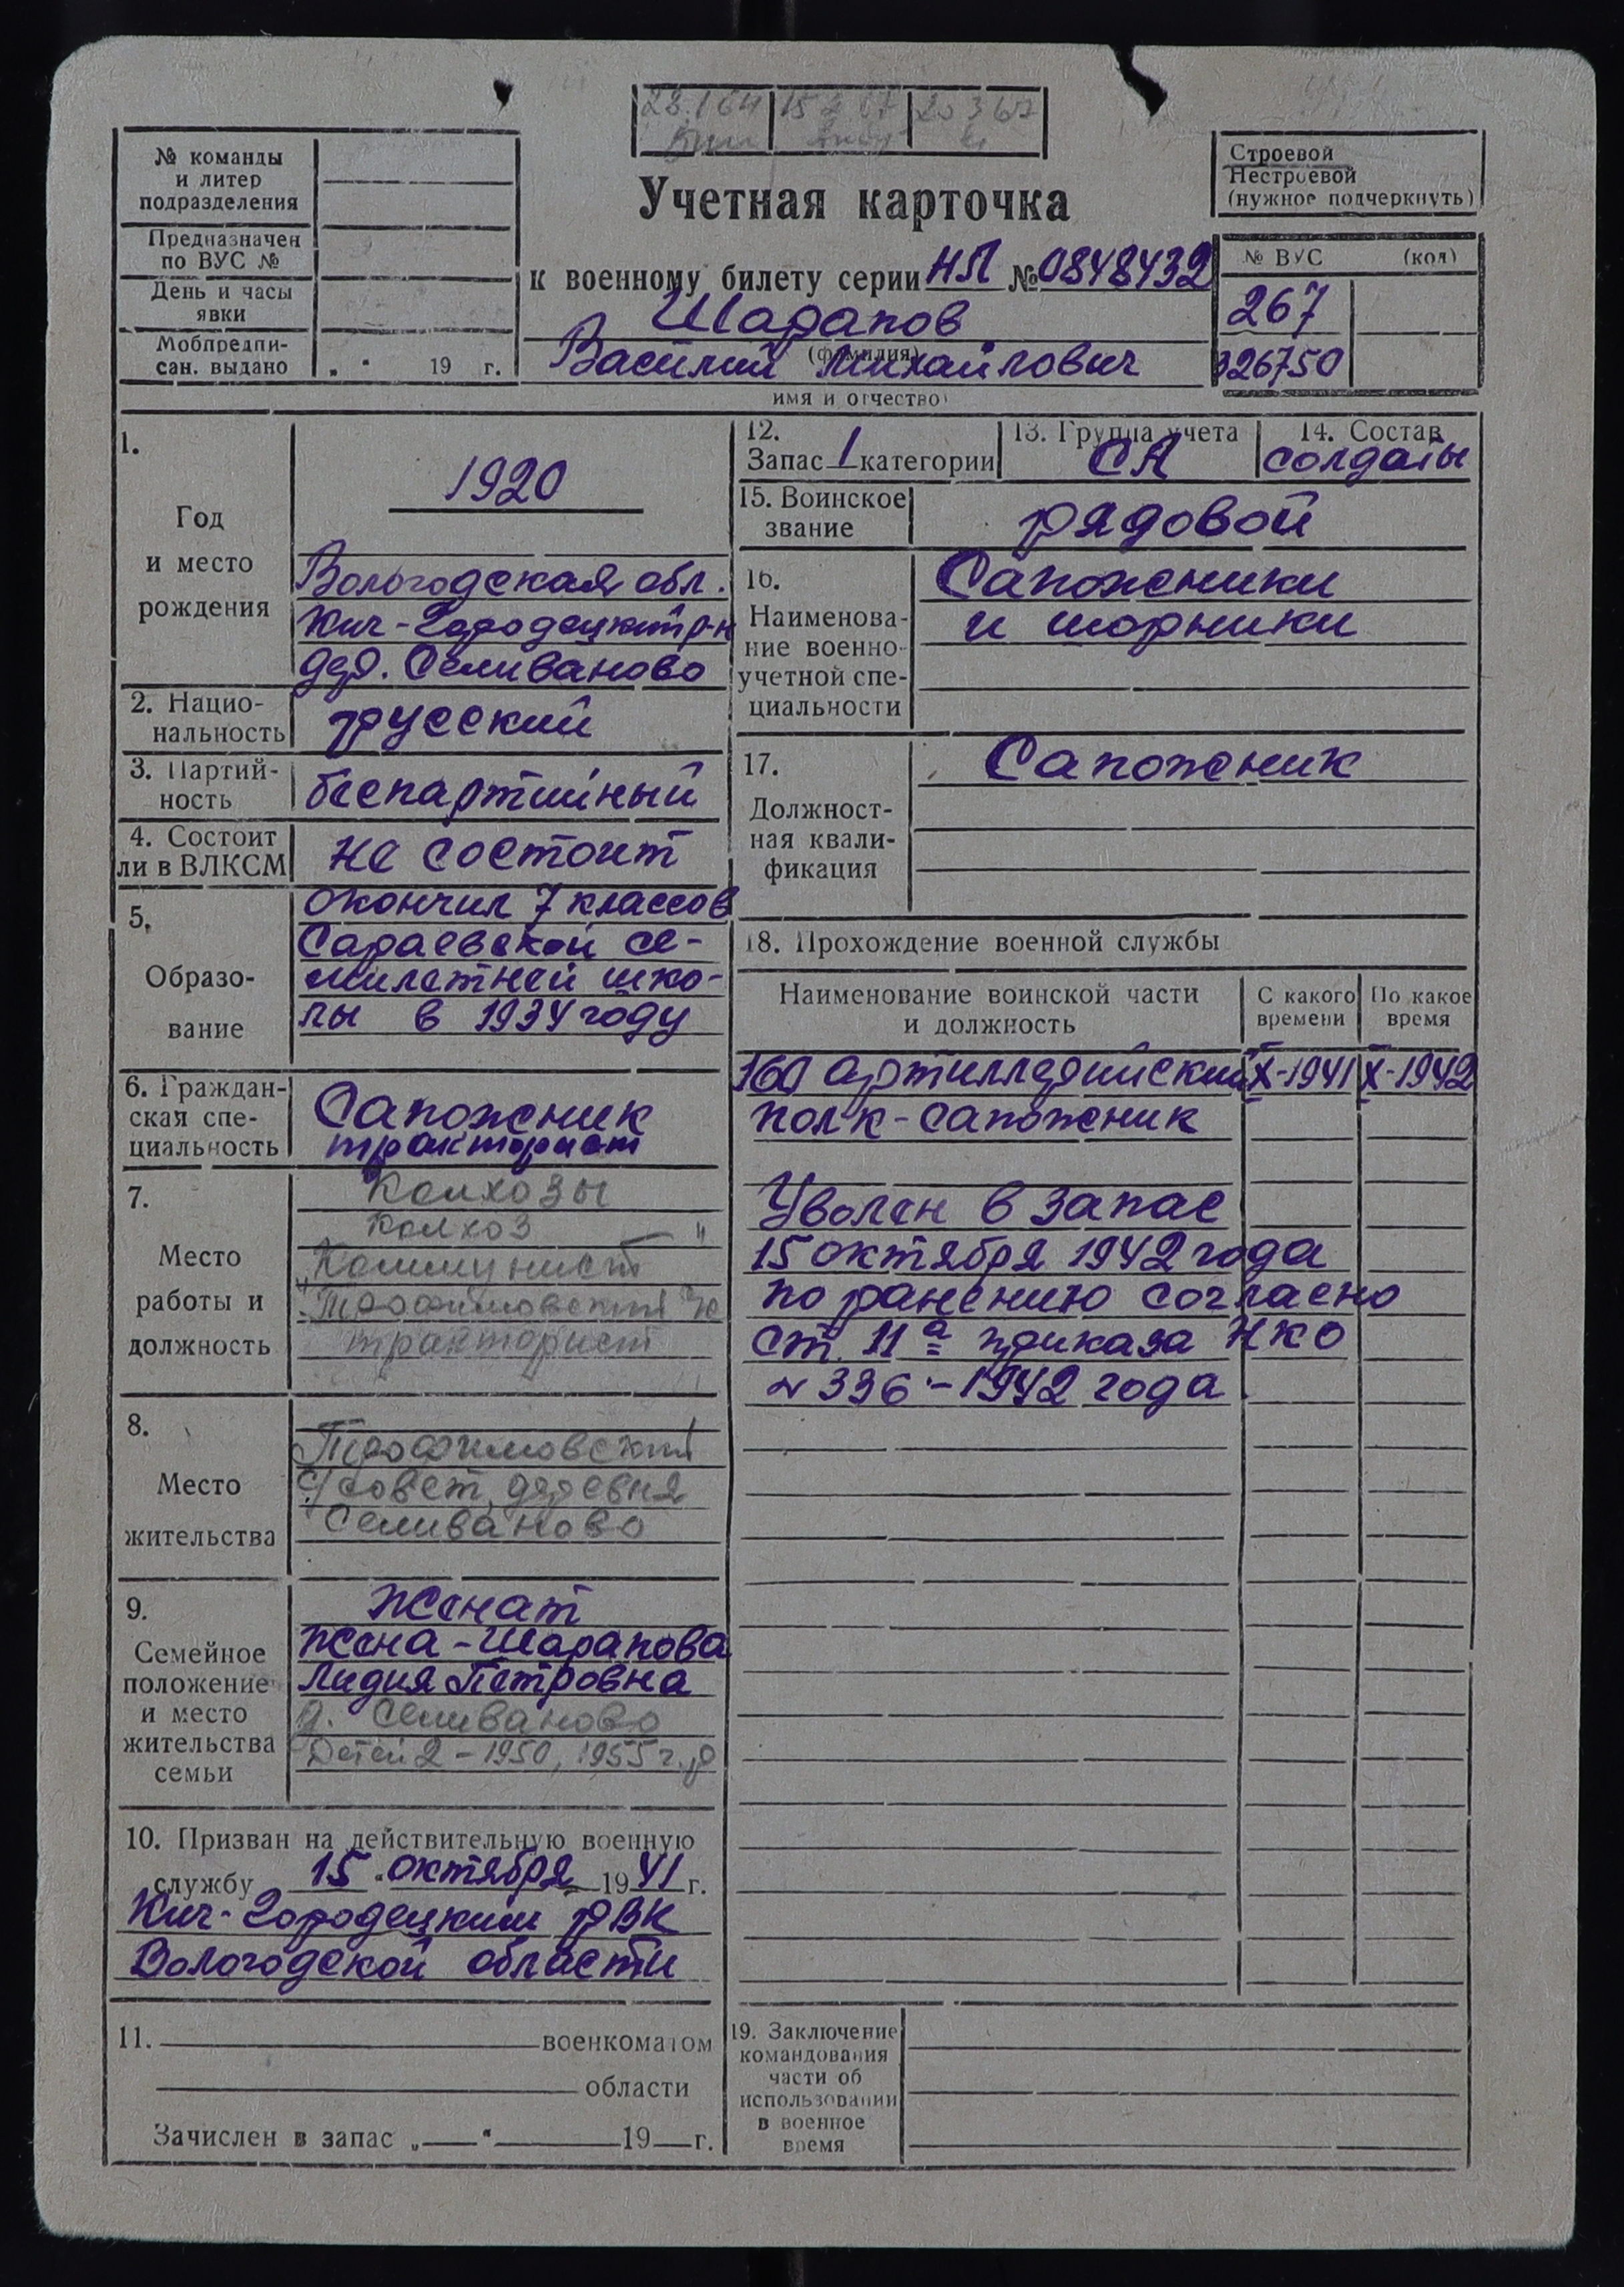 28.1 64 15 2 67 20 3 67
№ команды
и литер
подразделения
Предназначен
по ВУС №
День и часы
явки
Мобпредпи-
сан. выдано „ “ 19 г.
Учетная карточка
к военному билету серии НЛ № 0848432
Шарапов
(фамилия)
Василий Михайлович
имя и отчество)
Строевой
Нестроевой
(нужное подчеркнуть)
№ ВУС (код)
267
326750
1.
Год
и место
рождения
1920
Вологодская обл.
Кич-Городецкий р-н
дер. Селиваново
2. Нацио-
нальность
русский
3. Партий-
ность
беспартийный
4. Состоит
ли в ВЛКСМ
не состоит
5.
Образо-
вание
окончил 7 классов
Сараевской се-
милетней шко-
лы в 1934 году
6. Граждан-
ская спе-
циальность
Сапожник
тракторист
7.
Место
работы и
должность
Колхозы
Колхоз "
Коммунист
Трофимовский
тракторист
8.
Место
жительства
Трофимовский
с/совет, деревня
Селиваново
9.
Семейное
положение
и место
жительства
семьи
Женат
Жена - Шарапова
Лидия Петровна
д. Селиваново
Детей 2 - 1950, 1955 г.р
10. Призван на действительную военную
службу 15 „октября 1941 г.
Кич-Городецким РВК
Вологодской области
11. военкоматом
области
Зачислен в запас „ “ 19 г.
12.
Запас 1 категории
13. Группа учета
СА
14. Состав
солдаты
15. Воинское
звание
рядовой
16.
Наименова-
ние военно-
учетной спе-
циальности
Сапожники
и шорники
17.
Должност-
ная квали-
фикация
Сапожник
18. Прохождение военной службы
Наименование воинской части
и должность
С какого
времени
По какое
время
160 артиллерийский X-1941 X-1942
полк - сапожник
Уволен в запас
15 октября 1942 года
по ранению согласно
ст. 11а приказа НКО
№ 336 - 1942 года
19. Заключение
командования
части об
использовании
в военное
время